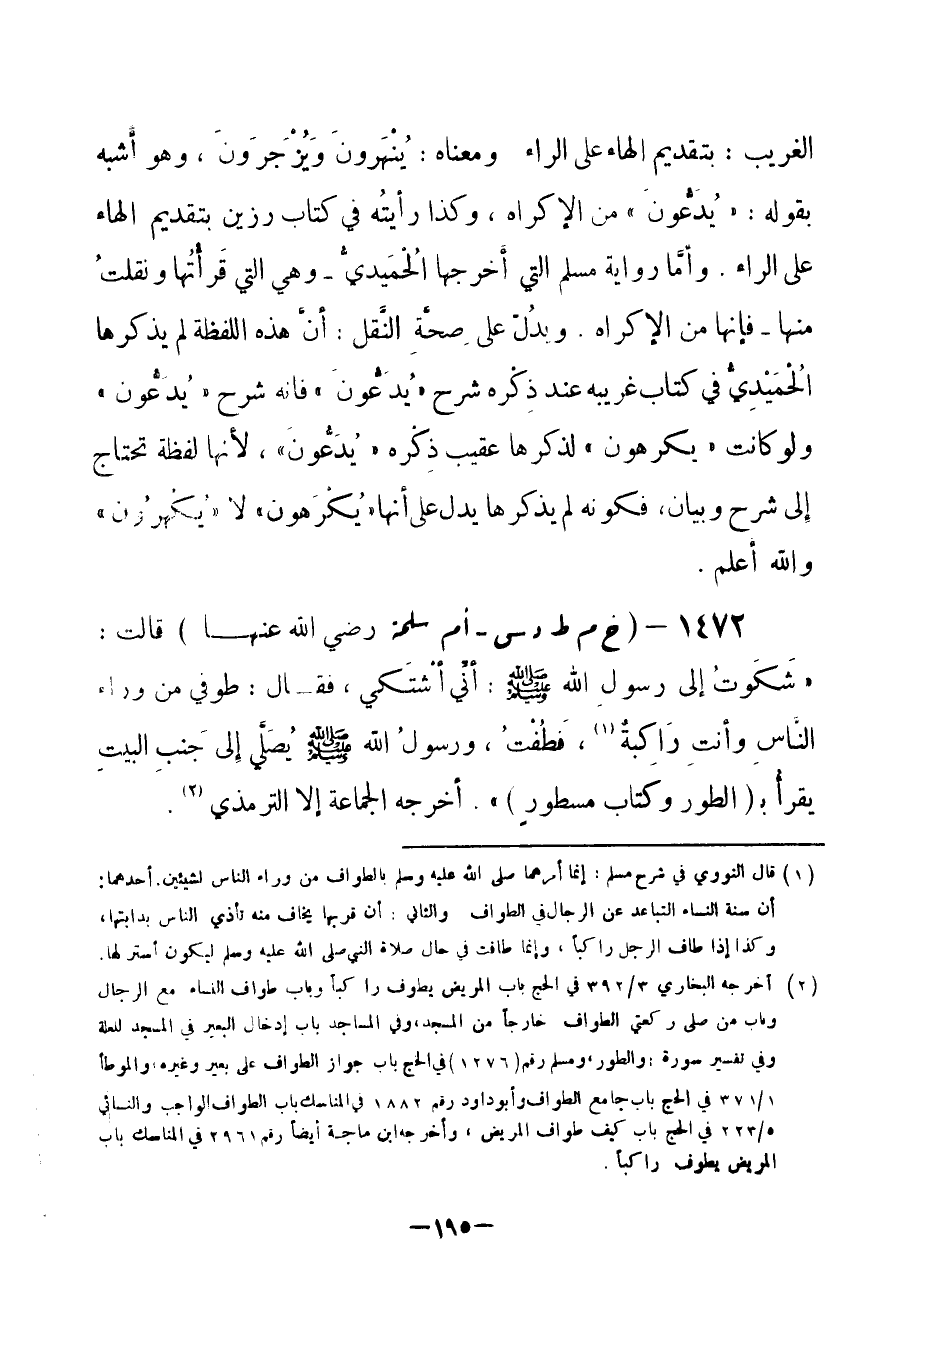 الغريب : بتقديم الهاء على الراء ومعناه : يُنْهَرونَ وَيُزْجَرَونَ ، وهو أشبه
بقوله : « يُدَعُّونَ » من الإكراه ، وكذا رأيتُه في كتاب رزين بتقديم الهاء
على الراء . وأمَّا رواية مسلم التي أخرجها الُحْمَيديُّ ـ وهي التي قَرأْتُها ونقلتُ
منها ـ فإنها من الإكراه . ويدُلّ على صحَّةِ النَّقل : أنَّ هذه اللفظة لم يذكرها
الُحْمَيْدِيُّ في كتاب غريبه عند ذِكْره شرح «يُدَعُّونَ» فانه شرح « يُدَعُّون »
ولو كانت « يكرهون » لذكرها عقيب ذِكْره « يُدَعُّونَ» ، لأنها لفظة تحتاج
إلى شرح وبيان، فكونه لم يذكرها يدل على أنها «يُكْرَهون» لا «يُكْهرُون»
والله أعلم .
١٤٧٢ – ( خ م ط د س ـ أم سلمة رضي الله عنهـــا ) قالت :
« شَكَوتُ إلى رسولِ الله ﷺ : أنِّي أشْتَكي ، فقـال : طوفي من وراء
النَّاسِ وأنتِ رَاكِبةٌ (١) ، فَطُفْتُ ، ورسولُ الله ﷺ يُصَلَّي إلى جَنبِ البيتِ
يقرأُ بـ( الطور وكتاب مسطورٍ )» . أخرجه الجماعة إلا الترمذي (٢) .
(١) قال النووي في شرح مسلم : إنما أمرهما صلى الله عليه وسلم بالطواف من وراء الناس لشيئين. أحدهما:
أن سنة النساء التباعد عن الرجال في الطواف والثاني : أن قربها يخاف منه تأذي الناس بدابتها،
وكذا إذا طاف الرجل راكباً ، وإنما طافت في حال صلاة النبي صلى الله عليه وسلم ليكون أستر لها.
(٢) أخرجه البخاري ٣٩٢/٣ في الحج باب المريض يطوف راكباً وباب طواف النساء مع الرجال
وباب من صلى ركعتي الطواف خارجاً من المسجد،وفي المساجد باب إدخال البعير في المسجد للعلة
وفي تفسير سورة : والطور،ومسلم رقم (١٢٧٦) في الحج باب جواز الطواف على بعير وغيره،والموطأ
٣٧١/١ في الحج باب جامع الطواف وأبو داود رقم ١٨٨٢ في المناسك باب الطواف الواجب والنسائي
٢٢٣/٥ في الحج باب كيف طواف المريض ، وأخرجه ابن ماجة أيضاً رقم ٢٩٦١ في المناسك باب
المريض يطوف راكباً .
—١٩٥—